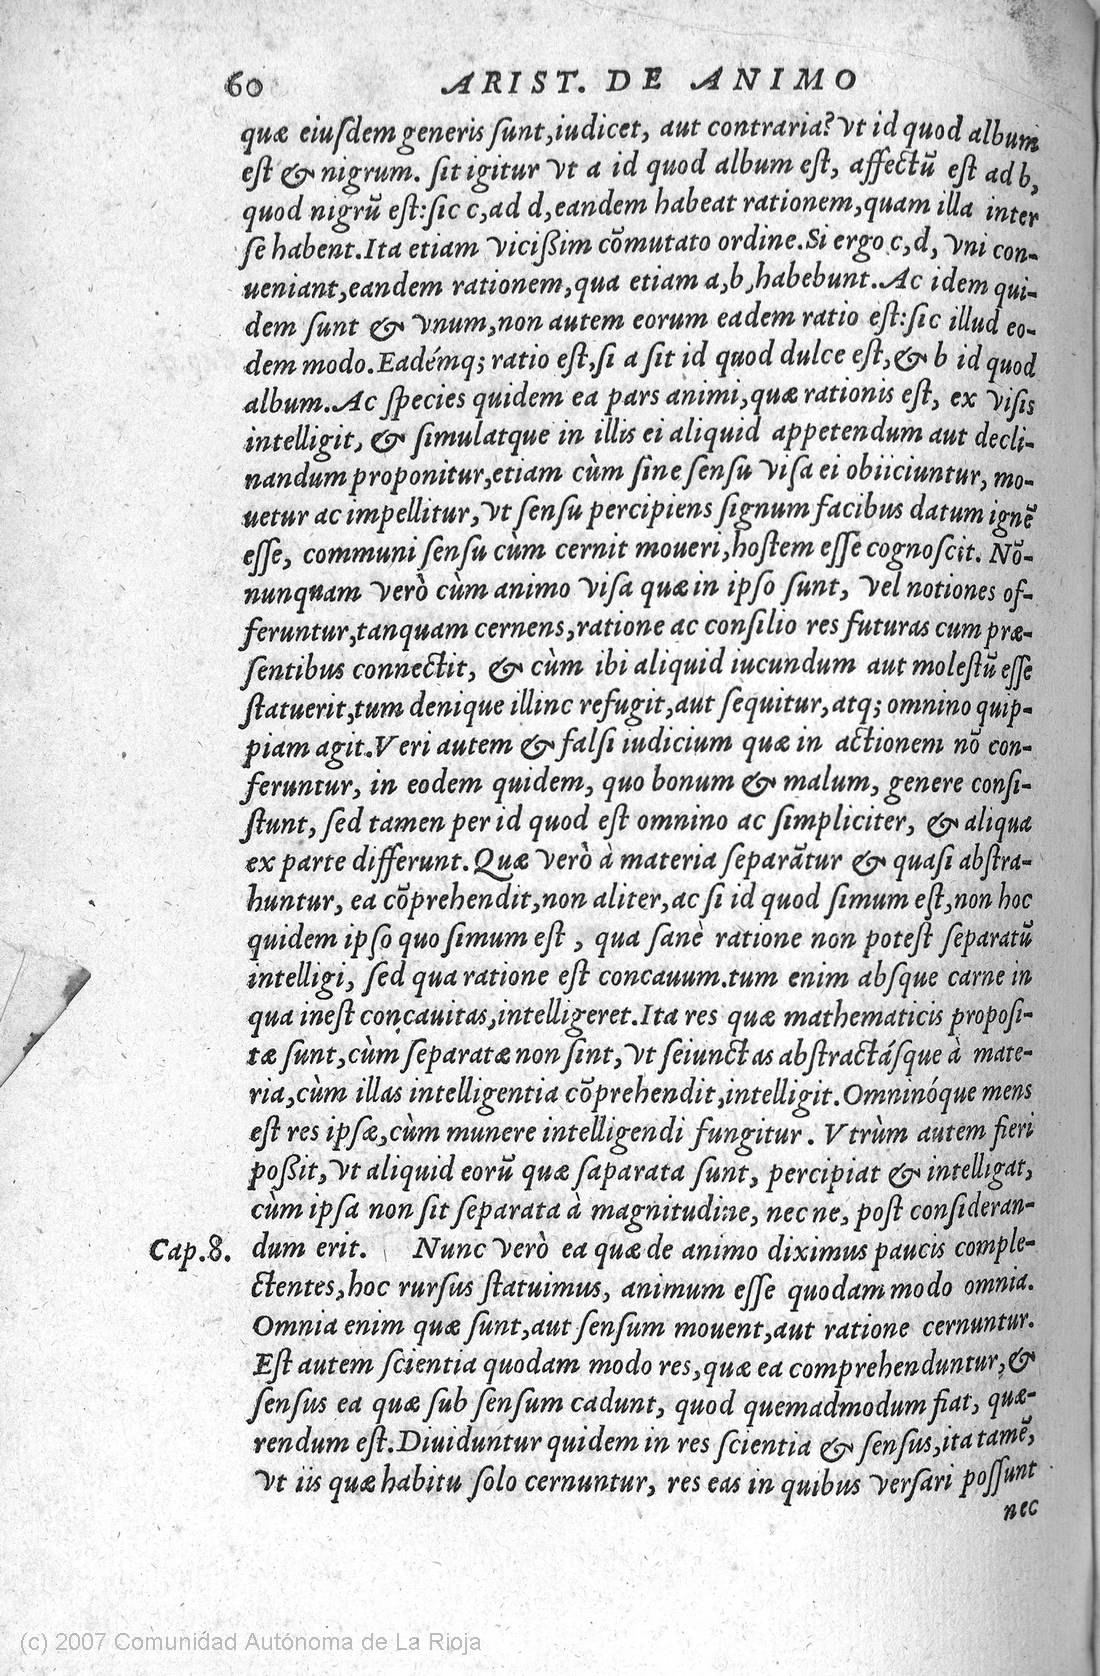 60 ARIST. DE ANIMO
quæ eiuſdem generis ſunt,iudicet, aut contraria? vt id quod album
eſt & nigrum. ſit igitur vt a id quod album eſt, affectũ eſt ad b,
quod nigrũ eſt:ſic c,ad d,eandem habeat rationem,quam illa inter
ſe habent.Ita etiam viciſsim cõmutato ordine.Si ergo c,d, vni con-
ueniant,eandem rationem,qua etiam a,b,habebunt.Ac idem qui-
dem ſunt & vnum,non autem eorum eadem ratio eſt:ſic illud eo-
dem modo.Eadémq; ratio eſt,ſi a ſit id quod dulce eſt,& b id quod
album.Ac ſpecies quidem ea pars animi,quæ rationis eſt, ex viſis
intelligit, & ſimulatque in illis ei aliquid appetendum aut decli-
nandum proponitur,etiam cùm ſine ſenſu viſa ei obiiciuntur, mo-
uetur ac impellitur,vt ſenſu percipiens ſignum facibus datum ignẽ
eſſe, communi ſenſu cùm cernit moueri,hoſtem eſſe cognoſcit. Nõ-
nunquam verò cùm animo viſa quæ in ipſo ſunt, vel notiones of-
feruntur,tanquam cernens,ratione ac conſilio res futuras cum præ-
ſentibus connectit, & cùm ibi aliquid iucundum aut moleſtũ eſſe
ſtatuerit,tum denique illinc refugit,aut ſequitur,atq; omnino quip-
piam agit.Veri autem & falſi iudicium quæ in actionem nõ con-
feruntur, in eodem quidem, quo bonum & malum, genere conſi-
ſtunt, ſed tamen per id quod eſt omnino ac ſimpliciter, & aliqua
ex parte differunt.Quæ verò à materia ſeparãtur & quaſi abſtra-
huntur, ea cõprehendit,non aliter,ac ſi id quod ſimum eſt,non hoc
quidem ipſo quo ſimum eſt , qua ſanè ratione non poteſt ſeparatũ
intelligi, ſed qua ratione eſt concauum.tum enim abſque carne in
qua ineſt concauitas,intelligeret.Ita res quæ mathematicis propoſi-
tæ ſunt,cùm ſeparatæ non ſint,vt ſeiunctas abſtractáſque à mate-
ria,cùm illas intelligentia cõprehendit,intelligit.Omninóque mens
eſt res ipſæ,cùm munere intelligendi fungitur. Vtrùm autem fieri
poſsit,vt aliquid eorũ quæ ſaparata ſunt, percipiat & intelligat,
cùm ipſa non ſit ſeparata à magnitudine, nec ne, poſt conſideran-
Cap.8. dum erit. Nunc verò ea quæ de animo diximus paucis comple-
ctentes,hoc rurſus ſtatuimus, animum eſſe quodam modo omnia.
Omnia enim quæ ſunt,aut ſenſum mouent,aut ratione cernuntur.
Eſt autem ſcientia quodam modo res,quæ ea comprehenduntur,&
ſenſus ea quæ ſub ſenſum cadunt, quod quemadmodum fiat, quæ-
rendum eſt.Diuiduntur quidem in res ſcientia & ſenſus,ita tamẽ,
vt iis quæ habitu ſolo cernuntur, res eas in quibus verſari poſſunt
nec
(c) 2007 Comunidad Autónoma de La Rioja